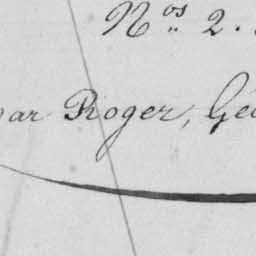 Nos 2.
par Roger, Géo